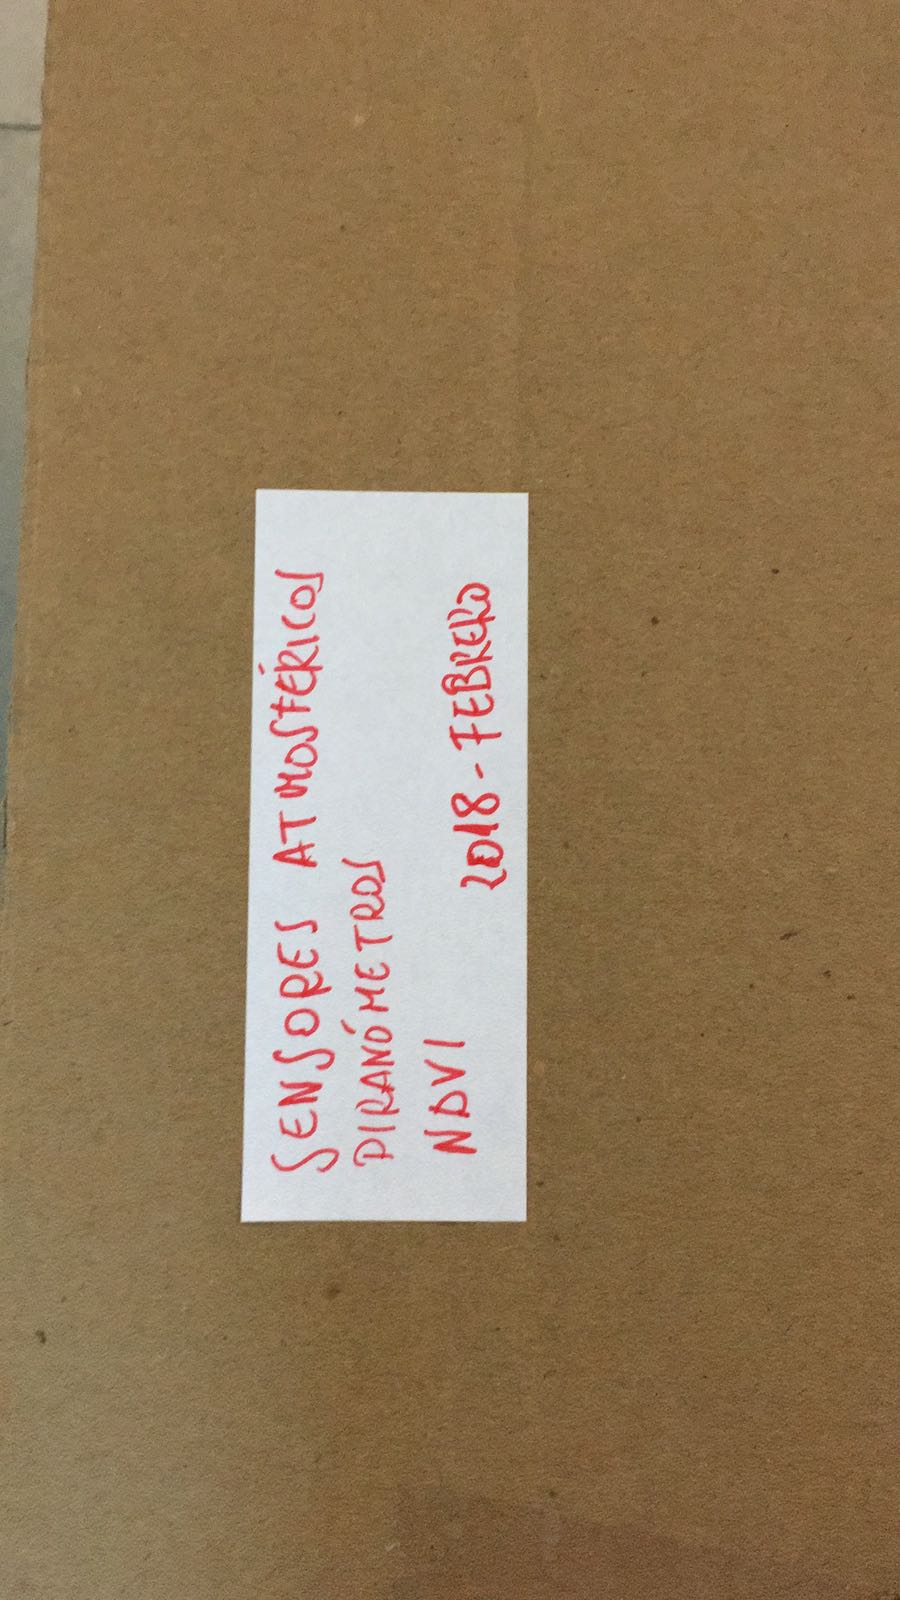 SENSORES ATMOSFÉRICOS
PIRANÓMETROS
NDVI
2018 - FEBRERO